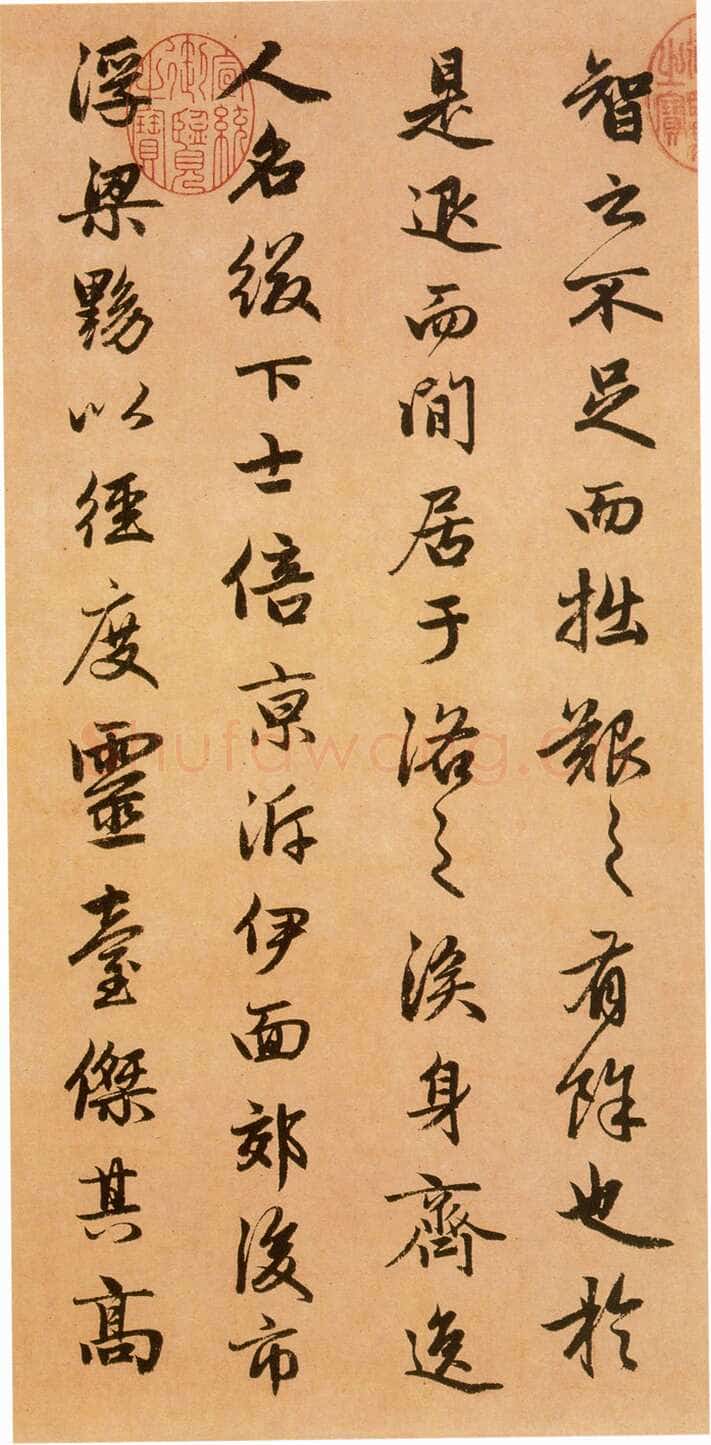 智之不足而拙艱之有餘也於
是退而間居于洛之涘身齊逸
人名綴下士倍京泝伊面郊後市
浮梁黝以徑度靈臺傑其高
宣統御覽之寶
shufawang.c